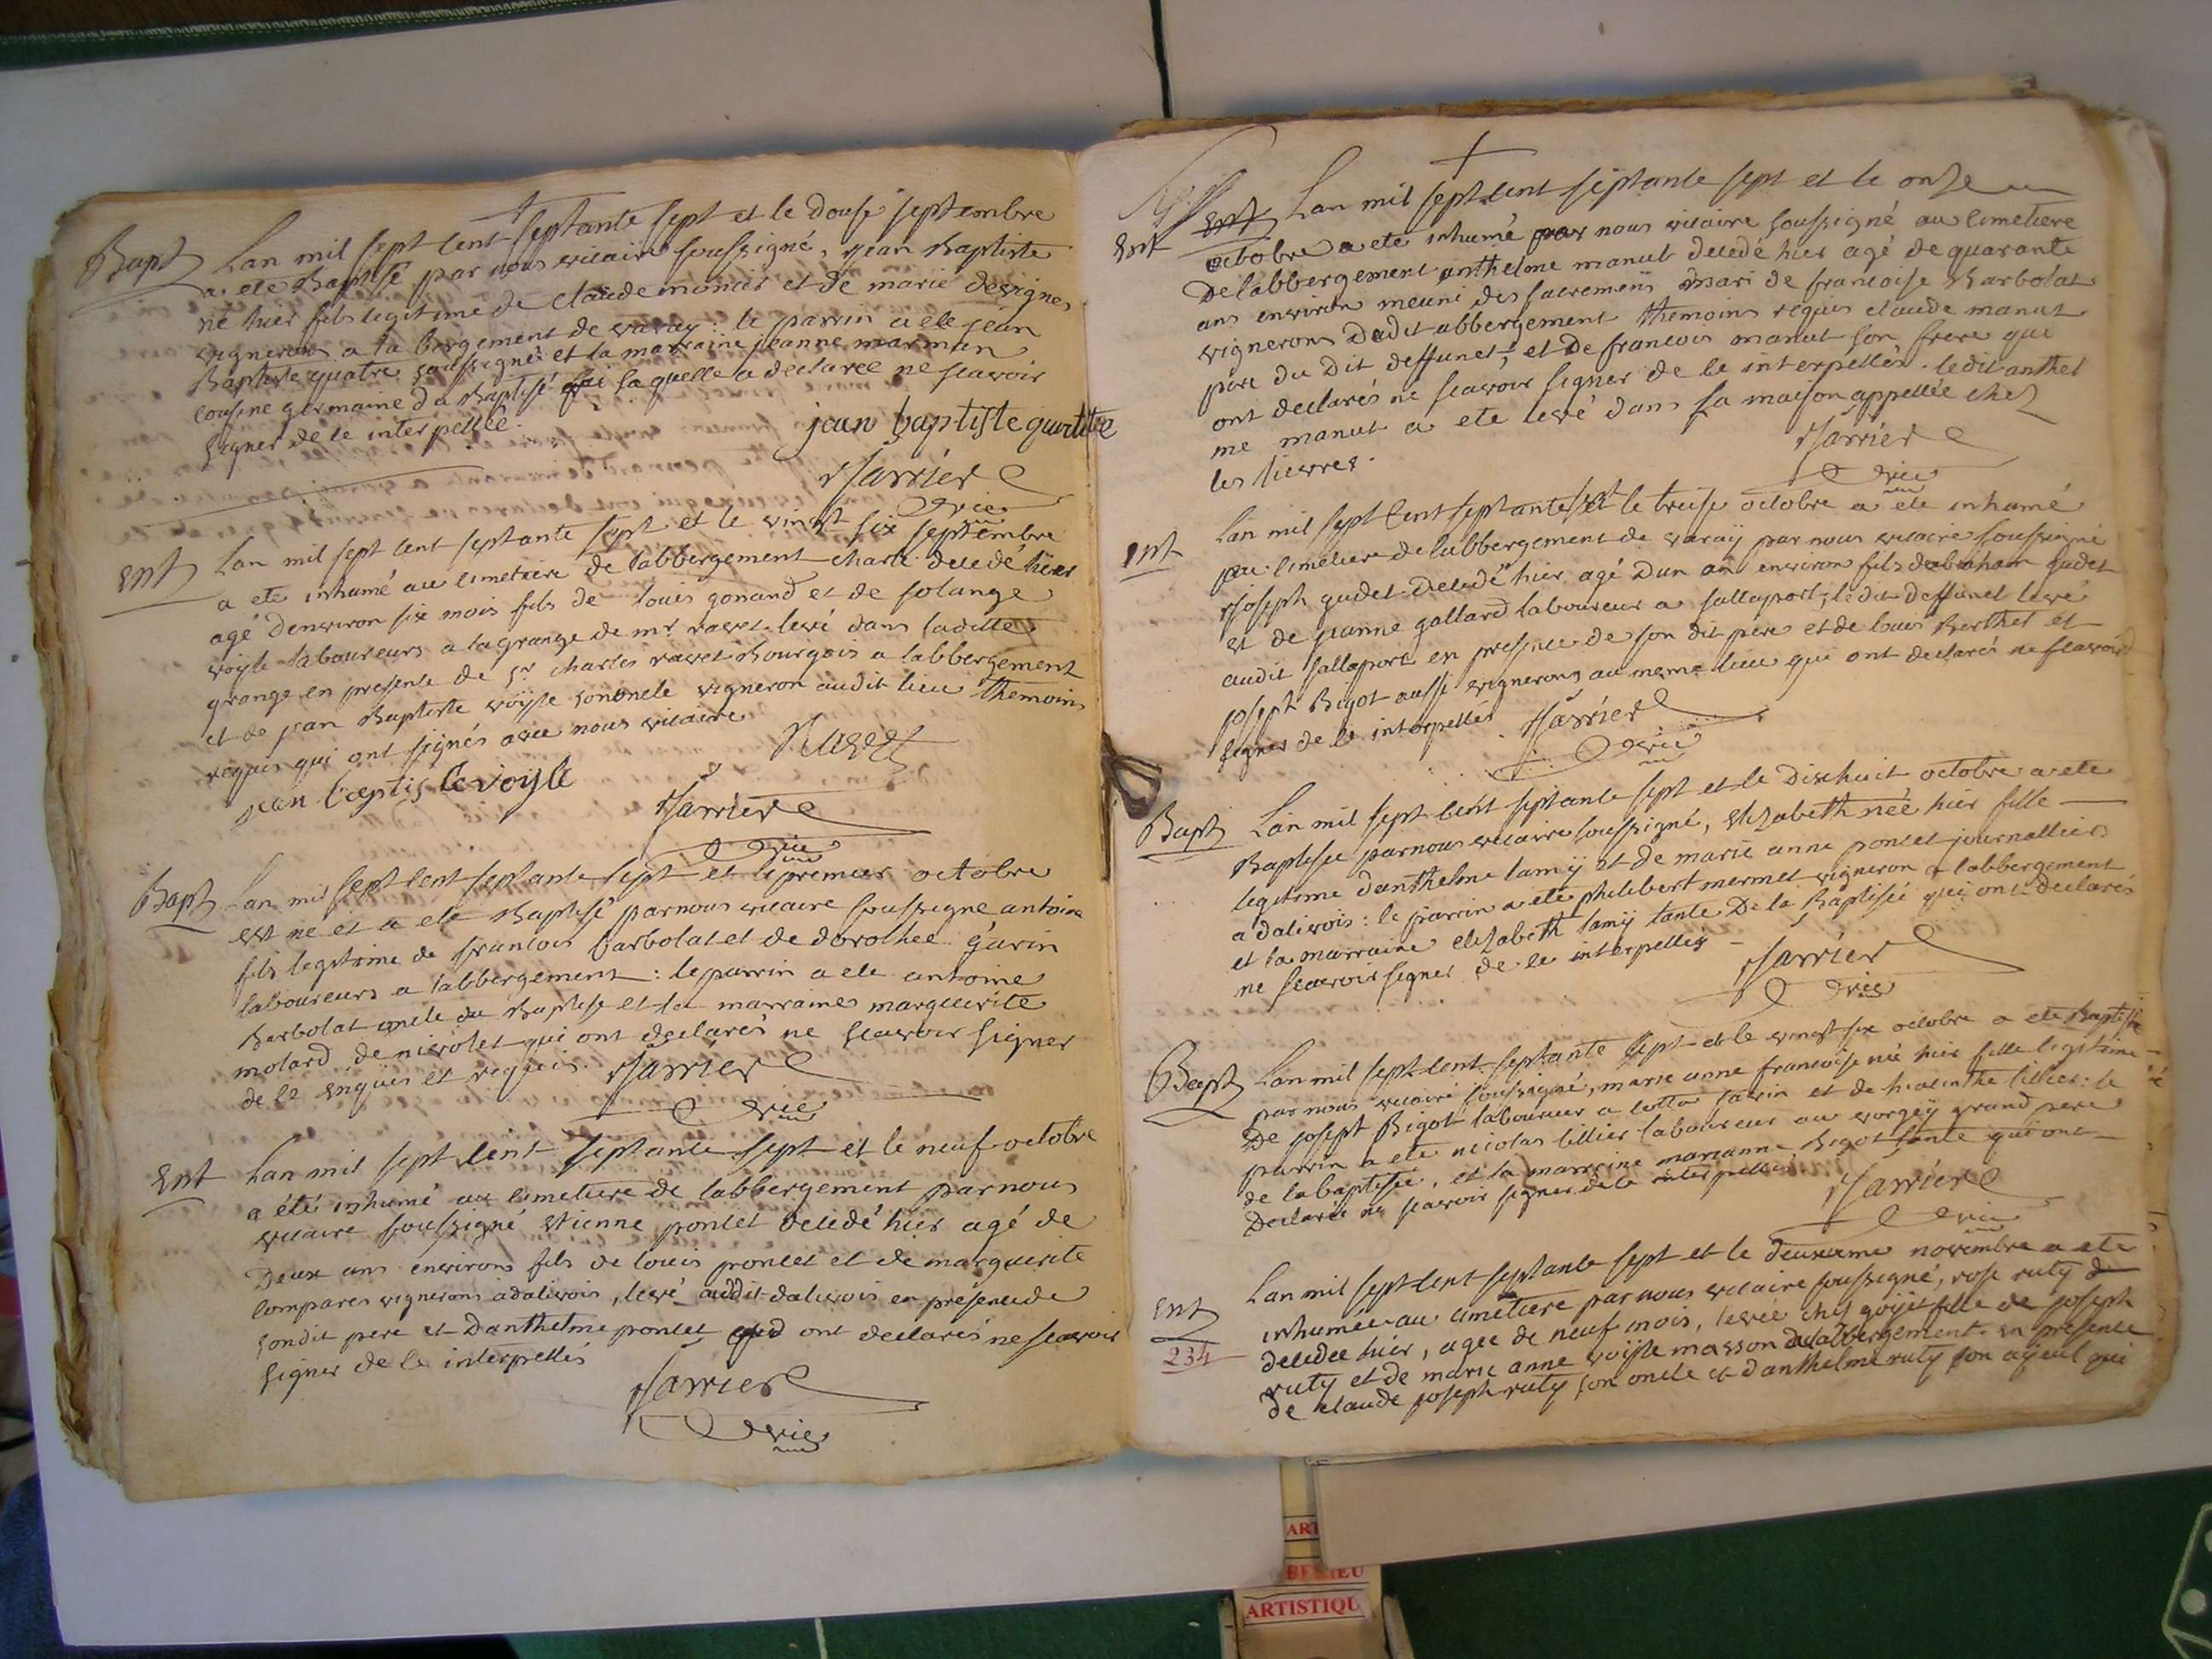 Bapt Lan mil sept cent septante sept et le douse septembre
a ete Baptisé par nous vicaire soussigné, Jean Baptiste
né hier fils legitime de claude monier et de marie desvignes
vignerons a la bergement de varay : le parrin a ete jean
Baptiste quatre soussigné et la marraine jeanne marmun
cousine germaine du Baptisé laquelle a declaree ne scavoir
signer de ce interpellée.
jean baptiste
Jarrier
vic
Ent Lan mil sept cent septante sept et le vingt six septembre
a ete inhumé au cimetiere de labbergement charle decedé hier
agé denviron six mois fils de louis gonand et de solange
voysle laboureurs a la grange de mr ravet levé dans laditte
grange en presente de sr charles ravet Bourgois a labbergement
et de jean Baptiste voysle son oncle vigneron audit lieu themoins
requis qui ont signés avec nous vicaire
jean baptis le voysle
Jarrier
vic
Bapt Lan mil sept cent septante sept et le premier octobre
est né et a ete Baptisé par nous vicaire soussigne antoine
fils legitime de francois barbolat et de dorothee garin
laboureurs a labbergement : le parrin a ete antoine
Barbolat oncle du Baptise et la marraine marguerite
molard de nivolet qui ont declarés ne scavoir signer
de ce enquis et requis. Jarrier
vic
Ent Lan mil sept cent septante sept et le neuf octobre
a été inhumé au cimetiere de labbergement par nous
vicaire soussigné Etienne poncet decedé hier agé de
Deux ans environ fils de louis poncet et de marguerite
compares vignerons a dalivois, levé audit dalivois en présence de
sondit pere et Danthelme poncet qui ont declarés ne scavoir
signer de ce interpellés
Jarrier
vic
Ent Lan mil sept cent septante sept et le onze
octobre a ete inhumé par nous vicaire soussigné au cimetiere
De labbergement anthelme manut decedé hier agé de quarante
ans environ meuni des sacremens mari de francoise Barbolat
vignerons Dudit abbergement themoins requis claude manut
pere du Dit deffunct, et De francois manut son frere qui
ont declarés ne scavoir signer de ce interpellés. ledit anthel
me manut a ete levé dans sa maison appellée chez
les lievres.
Jarrier
vic
Ent Lan mil sept cent septante sept le treise octobre a ete inhumé
au cimetiere de labbergement de varaÿ par nous vicaire soussigné
Joseph gudet Decedé hier agé Dun an environ fils dabraham gudet
et de jeanne gallard laboureur a sallaport, le dit Deffunct levé
audit sallaport en presence de son dit pere et de louis Berthet et
joseph Bigot aussi vignerons au meme lieu qui ont declarés ne scavoir
signer de ce interpellés. Jarrier
vic
Bapt Lan mil sept cent septante sept et le Dixhuit octobre a ete
Baptisee par nous vicaire soussigné, Elizabeth née hier fille
legitime danthelme lamÿ et de marie anne poncet journalliers
a dalivois : le parrin a ete philibert mermet vigneron a labbergement
et la marraine elizabeth lamÿ tante De la Baptisée qui ont declarés
ne scavoir signer de ce interpellés
Jarrier
vic
Bapt Lan mil sept cent septante sept et le vingt six octobre a ete Baptisée
par nous vicaire soussigné, marie anne francoise née hier fille legitime
De joseph Bigot laboureur a et de hiacinthe lillier : le
parrin a ete nicolas lillier laboureur au vorgeÿ grand pere
de la baptisée, et la marraine marianne Bigot tante qui ont
Declarés ne scavoir signer de ce interpellés
Jarrier
vic
Ent Lan mil sept cent septante sept et le deuxieme novembre a ete
234 inhumée au cimetiere par nous vicaire soussigné, rose ruty
decedee hier, agee de neuf mois, levee chez goÿet fille de joseph
ruty et de marie anne voisle masson de labbergement en presence
de claude joseph ruty son oncle et danthelme ruty son ayeul qui
ARTISTIQU